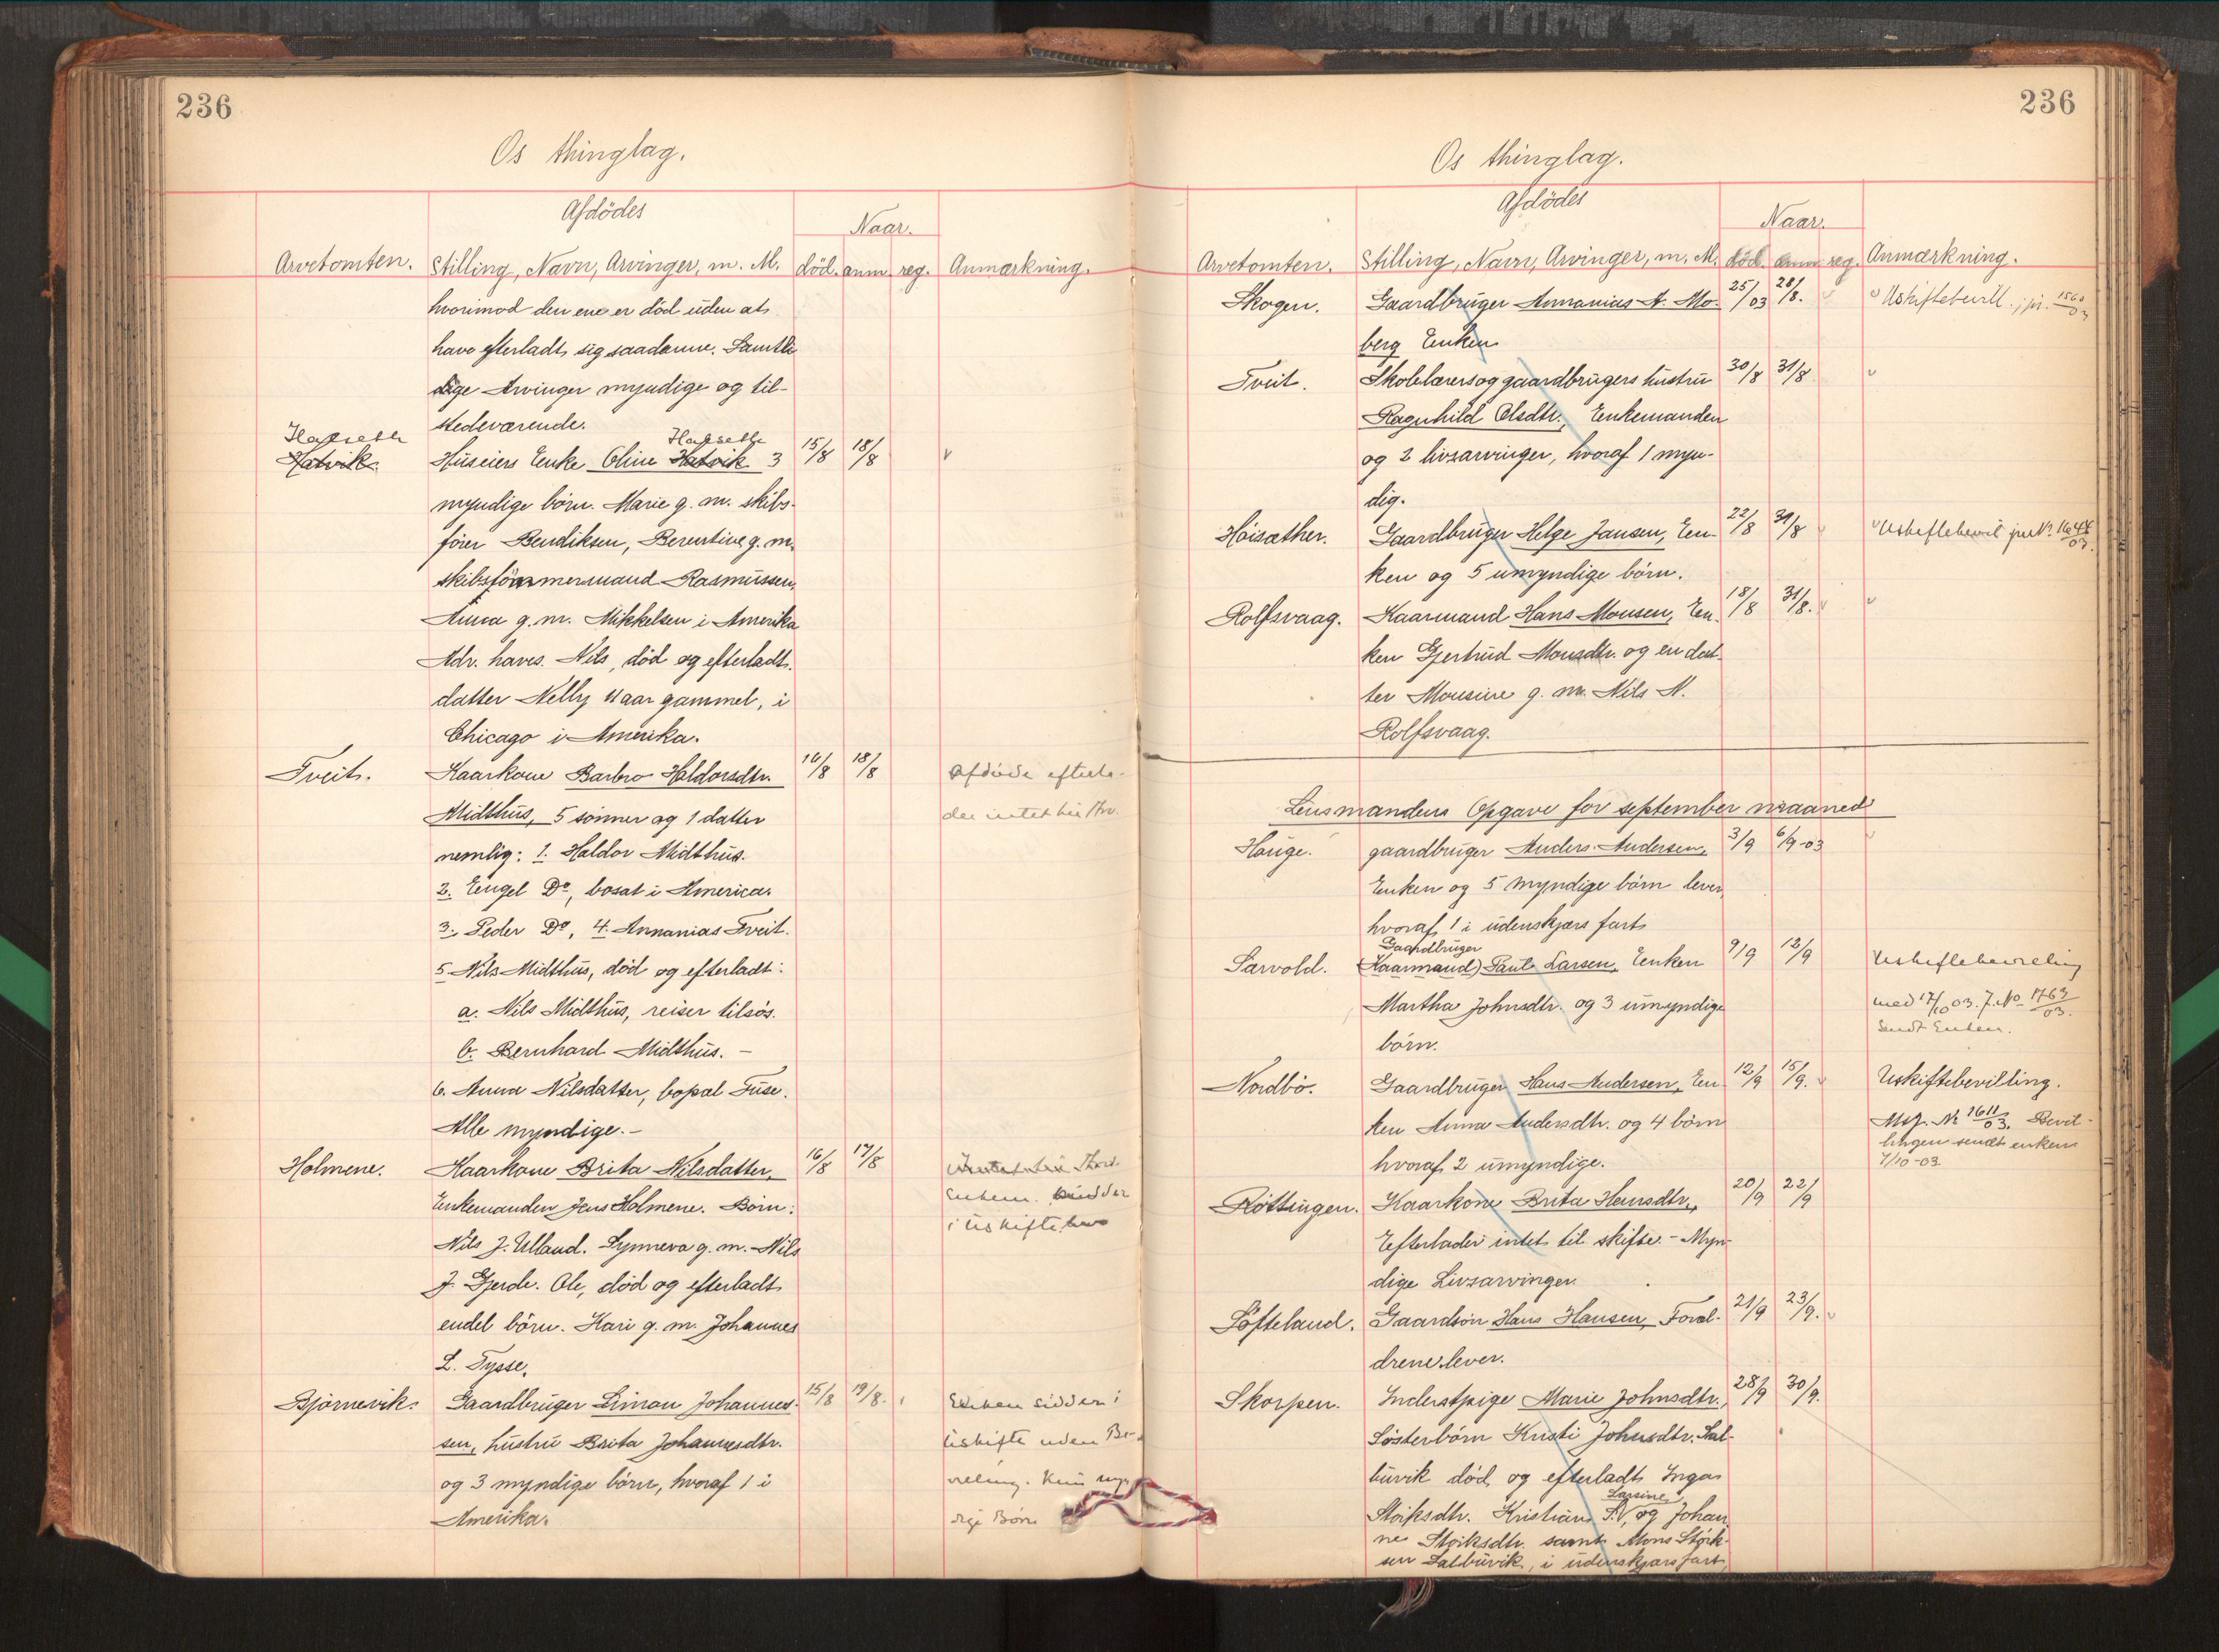 236
Os thinglag.
Afdödes
Naar.
Arvetomten. Stilling, Navn, Arvinger, m. M. död. anm. reg. Anmærkning.
hvorimod den ene er död uden at
have efterladt sig saadanne. Samtli
dige Arvinger myndige og til-
stedeværende.
Halseth
Hatvik. Huseiers Enke Oline Hatvik 3 15/8 18/8
Halseth
myndige börn. Marie g. m. skibs-
förer Bendiksen, Berentine g. m.
skibstömmermand Rasmussen,
Anna g. m. Mikkelsen i Amerika
Adr. haves. Nils, död og efterladt
datter Nelly 11 aar gammel, i
Chicago i Amerika.
Tveit. Kaarkone Barbro Haldorsdtr. 16/8 18/8 Afdöde efterla-
Midthus, 5 sönner og 1 datter der intet
nemlig: 1. Haldor Midthus.
2. Engel Do, bosat i America.
3. Peder Do, 4. Annanias Tveit.
5. Nils Midthus, död og efterladt:
a. Nils Midthus, reiser tilsös.
b. Bernhard Midthus. -
6. Anna Nilsdatter, bopal Fuse.
Alle myndige. -
Holmene. Kaarkone Brita Nilsdatter, 16/8 17/8
Enkemanden Jens Holmene. Börn: sidder
Nils J. Ulland. Synneva g. m. Nils i uskifte
J. Gjerde. Ole, död og efterladt
endel börn. Kari g. m. Johannes
L. Tysse.
Björnevik. Gaardbruger Simon Johannes- 15/8 19/8. Enken sidder i
sen, hustru Brita Johannesdtr. uskifte uden Be-
og 3 myndige börn, hvoraf 1 i villing. Kun myn
Amerika. dige Börn
236
Os thinglag.
Afdödes
Naar.
Arvetomten. Stilling, Navn, Arvinger, m. M. död. anm. reg. Anmærkning.
Skogen. Gaardbruger Annanias A. Mo- 25/03 28/8. Uskiftebevill. jr. 1560/03
berg Enken
Tveit. Skolelærers og gaardbrugers hustru 30/8 31/8
Ragnhild Olsdtr., Enkemanden
og 2 livsarvinger, hvoraf 1 myn-
dig.
Höisæther. Gaardbruger Helge Jansen, En- 22/8 31/8 Uskiftebevil No. 1648/03.
ken og 5 umyndige börn.
Rolfsvaag. Kaarmand Hans Monsen, En- 18/8 31/8.
ken Gjertrud Monsdtr. og en dat-
ter Monsine g. m. Nils N.
Rolfsvaag.
Lensmandens Opgave for september maaned
Hauge. gaardbruger Anders Andersen, 3/9 6/9-03
Enken og 5 myndige börn lever,
hvoraf 1 i udenskjærs fart
Gaardbruger
Sarvold. (Kaarmand) Paul Larsen, Enken 9/9 12/9 Uskiftebevilling
Martha Johnsdtr. og 3 umyndige med 17/10 03. J. No 1763/03.
börn. Sendt Enken.
Nordbö. Gaardbruger Hans Andersen, En 12/9 15/9. Uskiftebevilling.
ken Anna Andersdtr. og 4 börn No 1611/03. Bevil-
hvoraf 2 umyndige. lingen sendt enken
7/10-03
Röttingen. Kaarkone Brita Hansdtr., 20/9 22/9
Efterlader intet til skifte. - Myn-
dige Livsarvinger.
Söfteland. Gaardsön Hans Hansen, Foræl- 21/9 23/9.
drene lever.
Skorpen. Inderstpige Marie Johnsdtr., 28/9 30/9.
Sösterbörn Kristi Johnsdtr. Sal-
buvik död og efterladt Inga
Störksdtr. Kristian S. Larsine, og Johan
ne Störksdtr. samt Mons Störk-
sen Salbuvik, i udenskjærs fart,